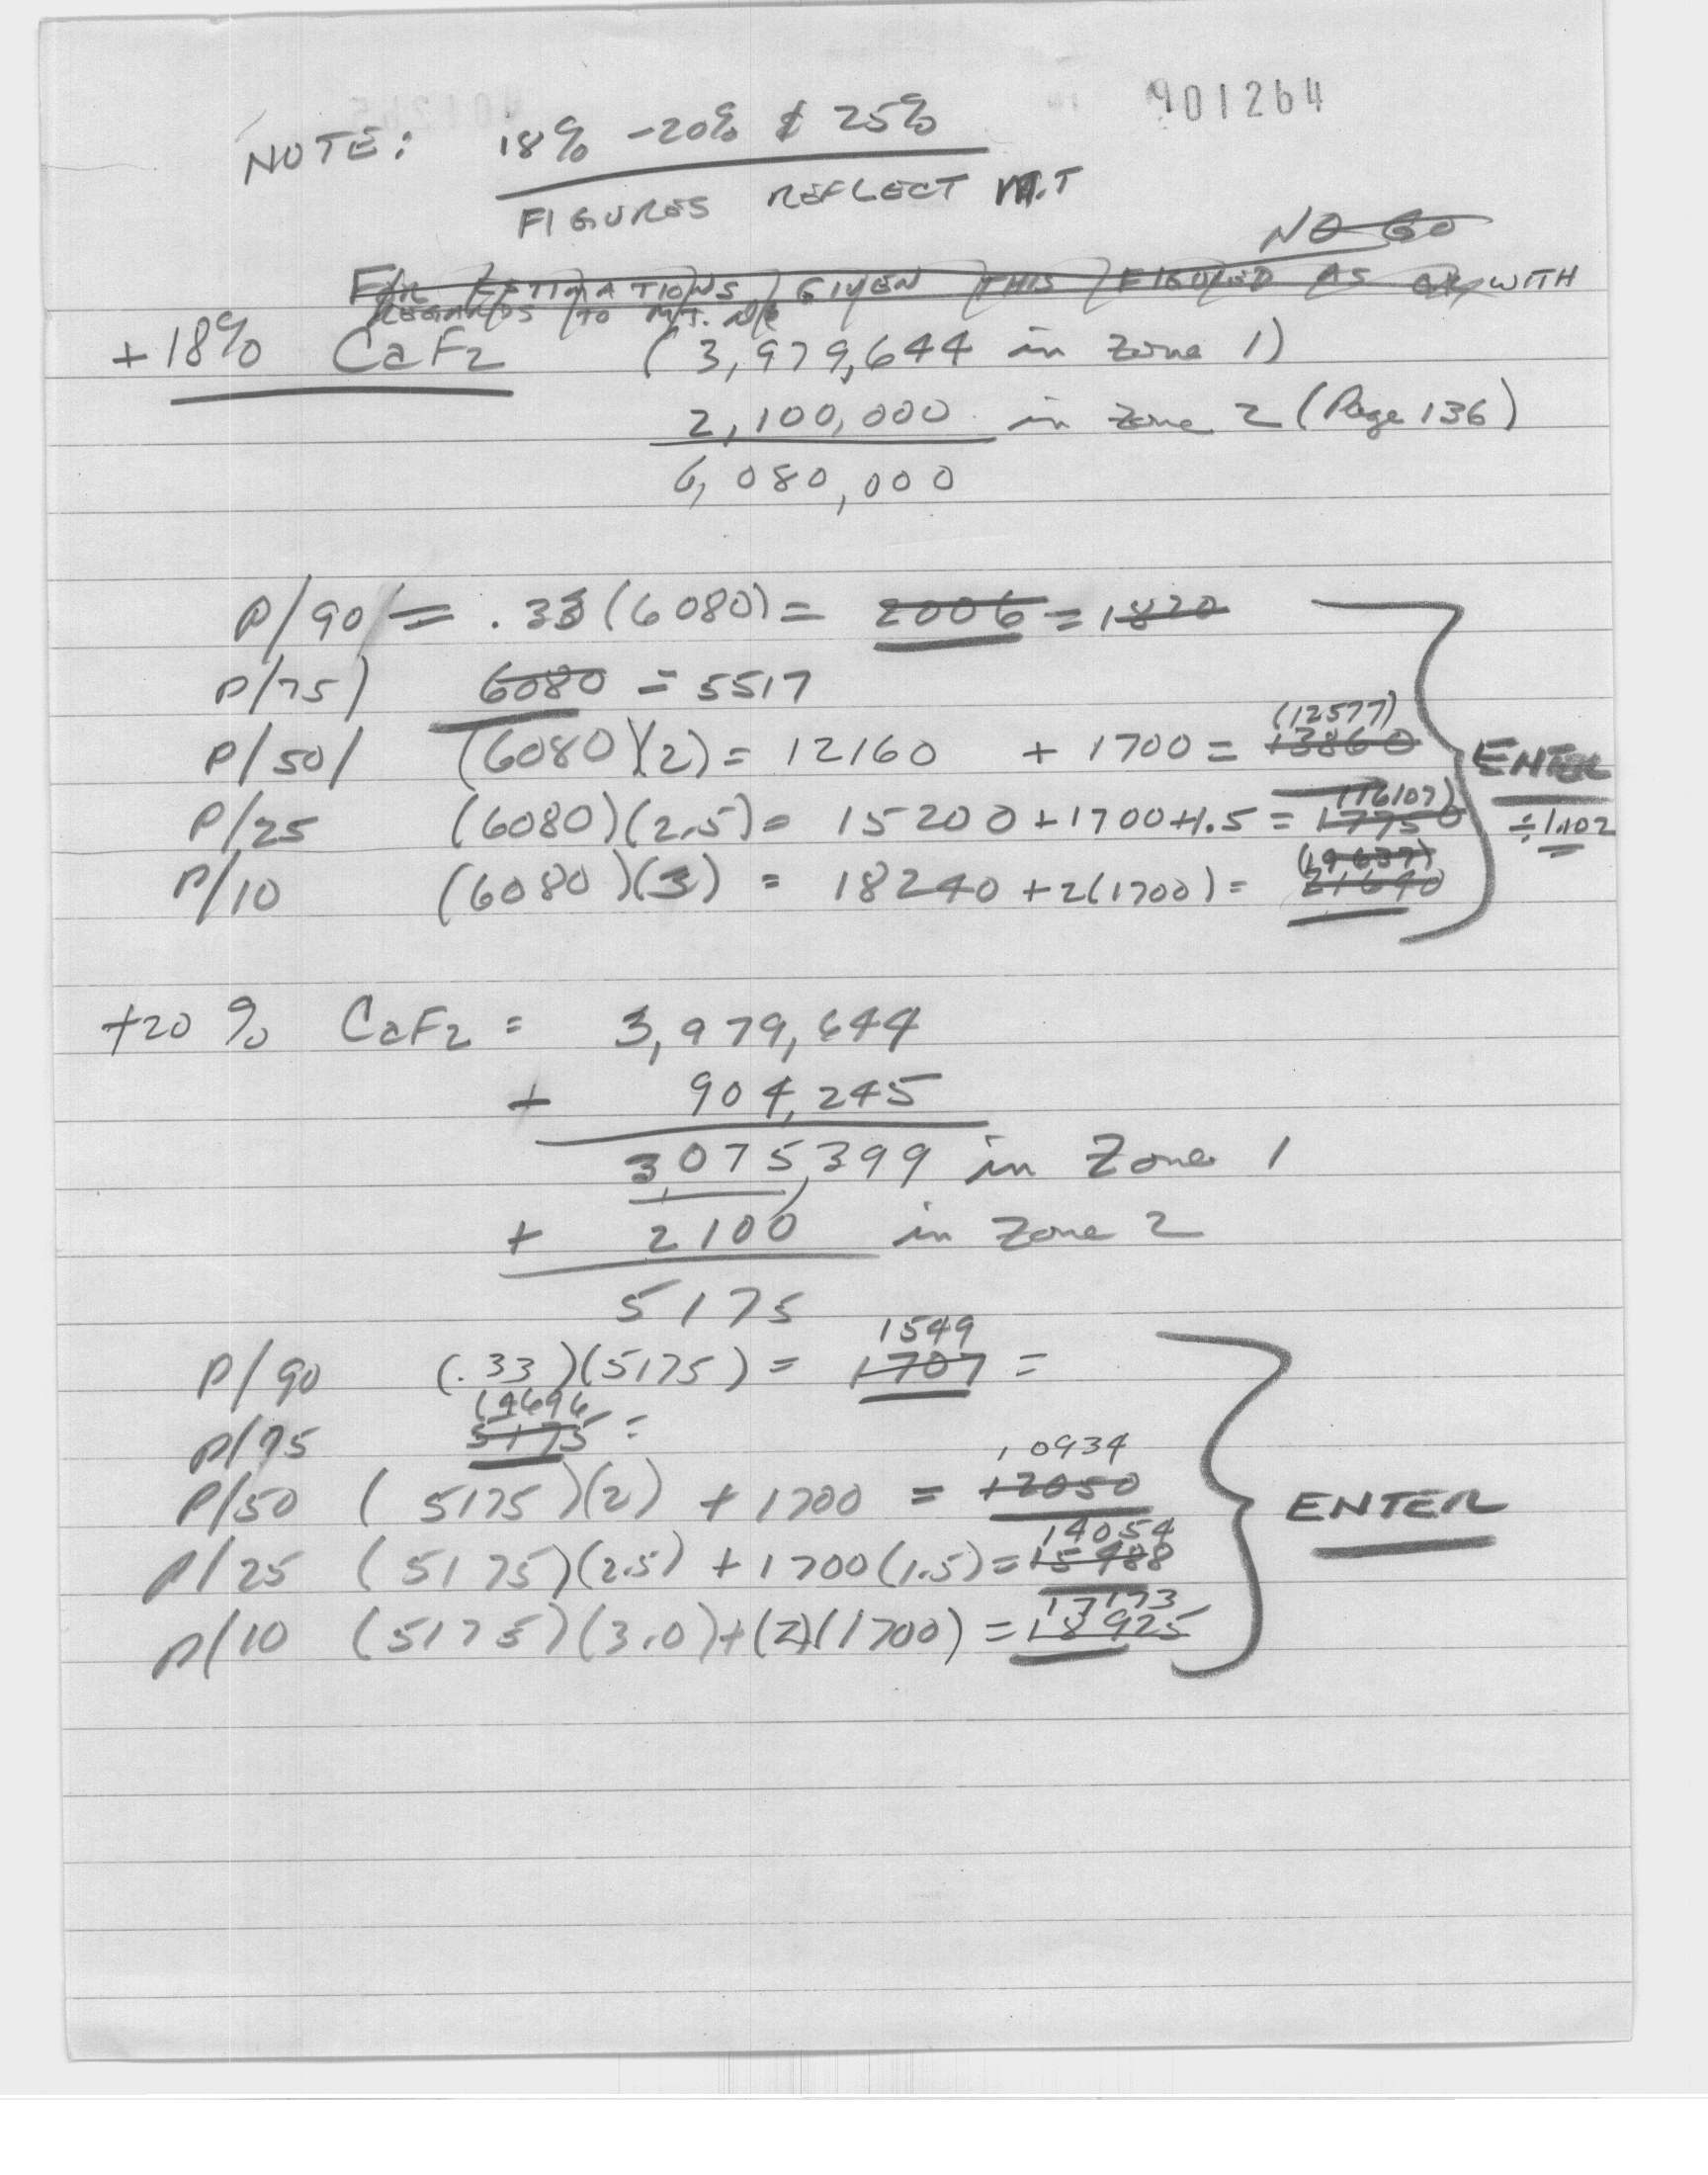 901264
NOTE: 18% -20% & 25%
FIGURES REFLECT M.T
NO GO
FOR ESTIMATIONS GIVEN THIS FIGURED AS OK WITH
REGARDS TO M.T.
+18% CaF2 (3,979,644 in Zone 1)
2,100,000 in Zone 2 (Page 136)
6,080,000
P/90/ = .33(6080) = 2006 = 1820
P/75) 6080 = 5517
(12577)
P/50/ (6080)(2) = 12160 + 1700 = 13860
ENTER
(16107)
P/25 (6080)(2.5) = 15200+1700+1.5 = 17750
÷1.102
(19637)
P/10 (6080)(3) = 18240+2(1700) = 21640
+20% CaF2 = 3,979,644
+ 904,245
3,075,399 in Zone 1
+ 2100 in Zone 2
5175
1549
P/90 (.33)(5175) = 1707 =
(4696
P/75 5175 =
10934
P/50 (5175)(2) + 1700 = 12050
ENTER
14054
P/25 (5175)(2.5) + 1700(1.5) = 15488
17173
P/10 (5175)(3.0)+(2)(1700) = 18925